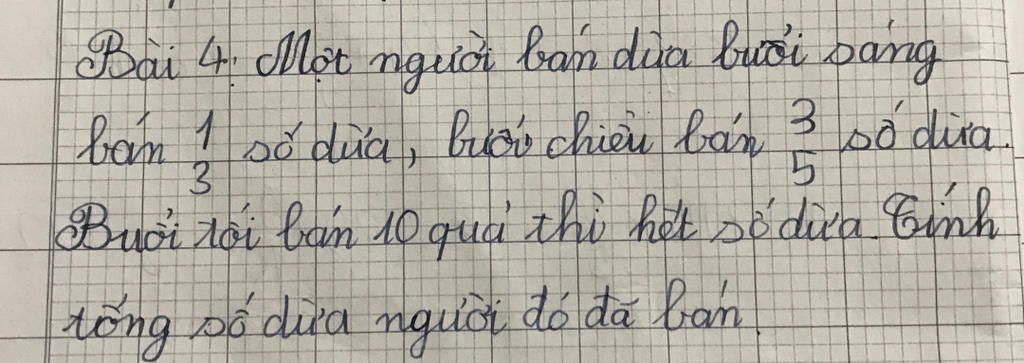 Bài 4. Một người bán dừa buổi sáng
bán 1/3 số dừa, buổi chiều bán 3/5 số dừa.
Buổi tối bán 10 quả thì hết số dừa. Tính
tổng số dừa người đó đã bán.